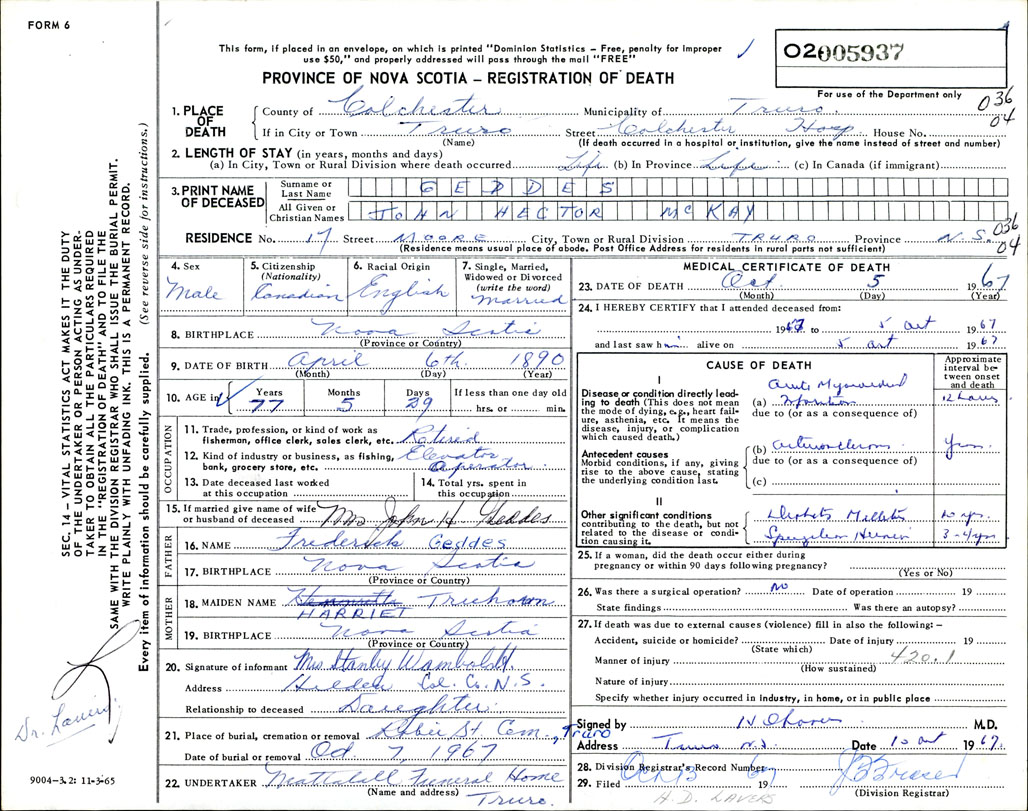 FORM 6
This form, if placed in an envelope, on which is printed "Dominion Statistics – Free, penalty for improper
use $50," and properly addressed will pass through the mail "FREE"
O2005937
PROVINCE OF NOVA SCOTIA – REGISTRATION OF DEATH
For use of the Department only
036
04
1. PLACE OF DEATH
County of Colchester Municipality of Truro
If in City or Town Truro Street Colchester Hosp House No.
(Name) (If death occurred in a hospital or institution, give the name instead of street and number)
2. LENGTH OF STAY (in years, months and days)
(a) In City, Town or Rural Division where death occurred Life (b) In Province Life (c) In Canada (if immigrant)
3. PRINT NAME OF DECEASED
Surname or Last Name GEDDES
All Given or Christian Names JOHN HECTOR McKAY
RESIDENCE No. 17 Street MOORE City, Town or Rural Division TRURO Province N.S.
036
04
(Residence means usual place of abode. Post Office Address for residents in rural parts not sufficient)
4. Sex
Male
5. Citizenship
(Nationality)
Canadian
6. Racial Origin
English
7. Single, Married,
Widowed or Divorced
(write the word)
Married
8. BIRTHPLACE Nova Scotia
(Province or Country)
9. DATE OF BIRTH April 6th 1890
(Month) (Day) (Year)
10. AGE in Years Months Days If less than one day old
77 5 29 hrs. or min.
OCCUPATION
11. Trade, profession, or kind of work as
fisherman, office clerk, sales clerk, etc. Retired
12. Kind of industry or business, as fishing,
bank, grocery store, etc. Elevator
Operator
13. Date deceased last worked
at this occupation
14. Total yrs. spent in
this occupation
15. If married give name of wife
or husband of deceased Mrs John H Geddes
FATHER
16. NAME Frederick Geddes
17. BIRTHPLACE Nova Scotia
(Province or Country)
MOTHER
18. MAIDEN NAME
HARRIET
19. BIRTHPLACE Nova Scotia
(Province or Country)
20. Signature of informant Mrs Stanley Wamboldt
Address Hilden Col. Co. N.S.
Relationship to deceased Daughter
21. Place of burial, cremation or removal Robie St. Cem, Truro
Date of burial or removal Oct 7, 1967
22. UNDERTAKER Mattatall Funeral Home
(Name and address) Truro.
MEDICAL CERTIFICATE OF DEATH
23. DATE OF DEATH Oct. 5 1967
(Month) (Day) (Year)
24. I HEREBY CERTIFY that I attended deceased from:
1967 to 5 Oct 1967
and last saw him alive on 5 Oct 1967
CAUSE OF DEATH
Approximate
interval be-
tween onset
and death
I
Disease or condition directly lead-
ing to death (This does not mean
the mode of dying, e.g., heart fail-
ure, asthenia, etc. It means the
disease, injury, or complication
which caused death.)
Acute Myocardial
(a) Infarction 12 hours
due to (or as a consequence of)
Antecedent causes
Morbid conditions, if any, giving
rise to the above cause, stating
the underlying condition last.
(b) arteriosclerosis yrs.
due to (or as a consequence of)
(c)
II
Other significant conditions
contributing to the death, but not
related to the disease or condi-
tion causing it.
Diabetes Mellitus 10 yrs.
3-4 yrs
25. If a woman, did the death occur either during
pregnancy or within 90 days following pregnancy?
(Yes or No)
26. Was there a surgical operation? no Date of operation 19
State findings Was there an autopsy?
27. If death was due to external causes (violence) fill in also the following: –
Accident, suicide or homicide? Date of injury 19
(State which)
Manner of injury 420.1
(How sustained)
Nature of injury
Specify whether injury occurred in industry, in home, or in public place
Signed by M.D.
Address Truro N.S. Date 10 Oct 1967
28. Division Registrar's Record Number
29. Filed Oct 13 1967
(Division Registrar)
H.D. LAVERS
SEC. 14 – VITAL STATISTICS ACT MAKES IT THE DUTY
OF THE UNDERTAKER OR PERSON ACTING AS UNDER-
TAKER TO OBTAIN ALL THE PARTICULARS REQUIRED
IN THE "REGISTRATION OF DEATH" AND TO FILE THE
SAME WITH THE DIVISION REGISTRAR WHO SHALL ISSUE THE BURIAL PERMIT.
WRITE PLAINLY WITH UNFADING INK. THIS IS A PERMANENT RECORD.
Every item of information should be carefully supplied. (See reverse side for instructions.)
Dr. Lavers
9004-3.2: 11-3-65